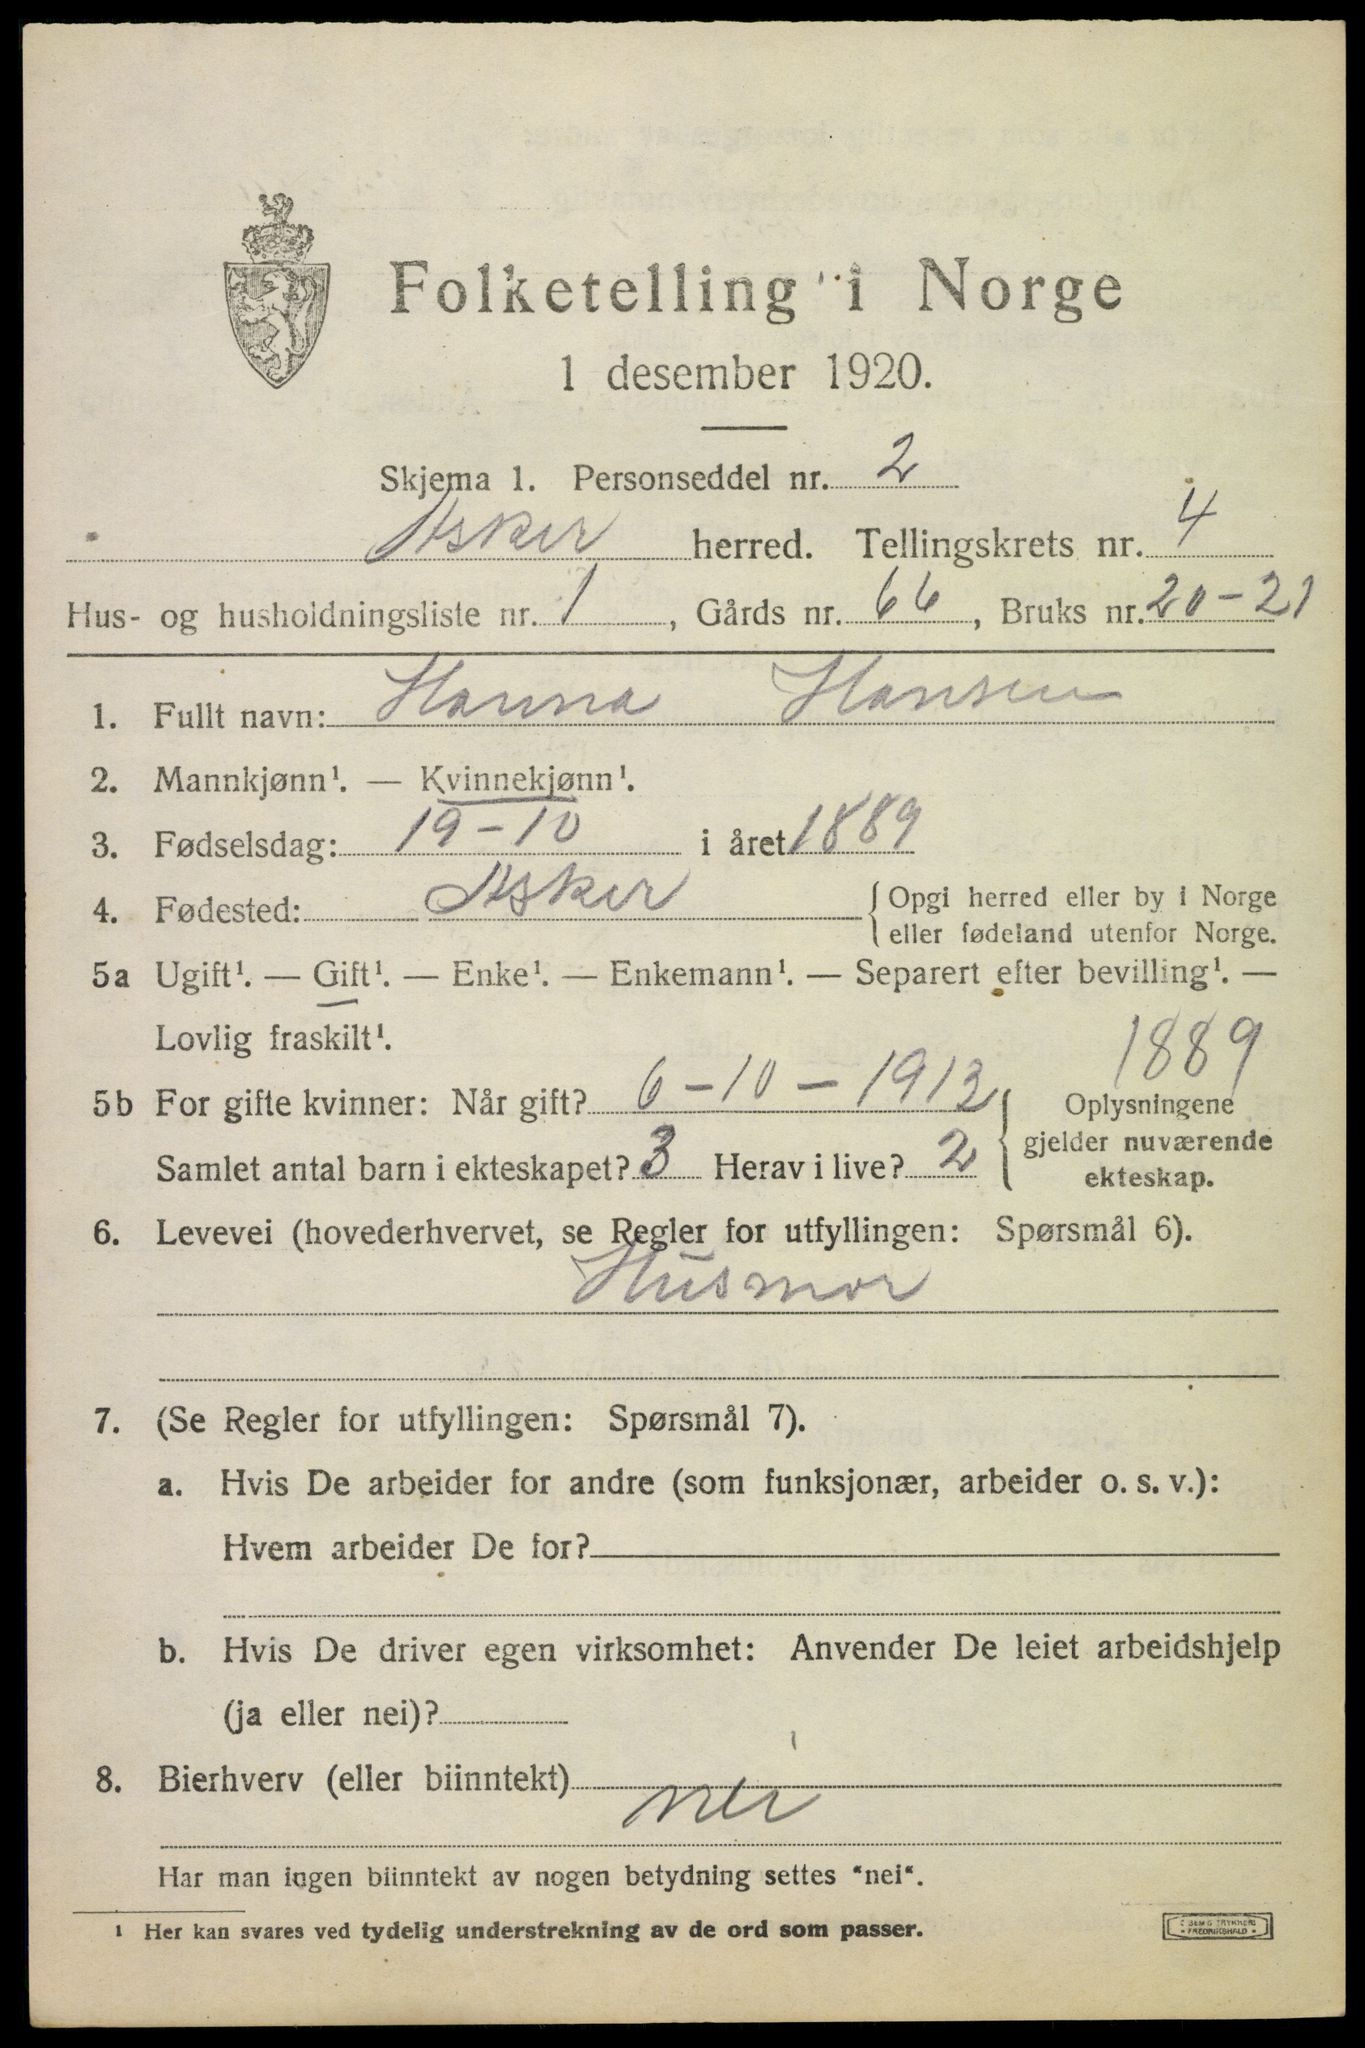 Folketelling i Norge
1 desember 1920.
Skjema 1. Personseddel nr. 2
Asker herred. Tellingskrets nr. 4
Hus- og husholdningsliste nr. 1, Gårds nr. 66, Bruks nr. 20-21
1. Fullt navn: Hanna Hansen
2. Mannkjønn¹. — Kvinnekjønn¹.
3. Fødselsdag: 19-10 i året 1889
4. Fødested: Asker { Opgi herred eller by i Norge
eller fødeland utenfor Norge.
5a Ugift¹. — Gift¹. — Enke¹. — Enkemann¹. — Separert efter bevilling¹. —
Lovlig fraskilt¹.
1889
5b For gifte kvinner: Når gift? 6-10-1913 { Oplysningene
gjelder nuværende
Samlet antal barn i ekteskapet? 3 Herav i live? 2
ekteskap.
6. Levevei (hovederhvervet, se Regler for utfyllingen: Spørsmål 6).
Husmor
7. (Se Regler for utfyllingen: Spørsmål 7).
a. Hvis De arbeider for andre (som funksjonær, arbeider o. s. v.):
Hvem arbeider De for?
b. Hvis De driver egen virksomhet: Anvender De leiet arbeidshjelp
(ja eller nei)?
8. Bierhverv (eller biinntekt) nei
Har man ingen biinntekt av nogen betydning settes "nei".
¹ Her kan svares ved tydelig understrekning av de ord som passer.